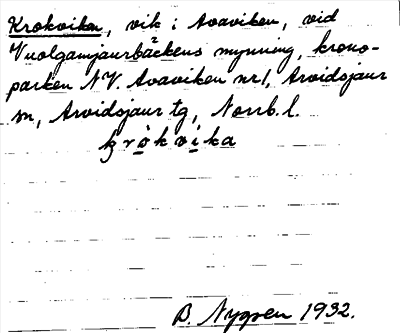 Krokviken, vik i Avaviken, vid
Vuolgamjaurbäckens mynning, krono-
parken NV. Avaviken nr 1, Arvidsjaur
sn, Arvidsjaur tg, Norrb. l.
krȯkvika
B. Nygren 1932.